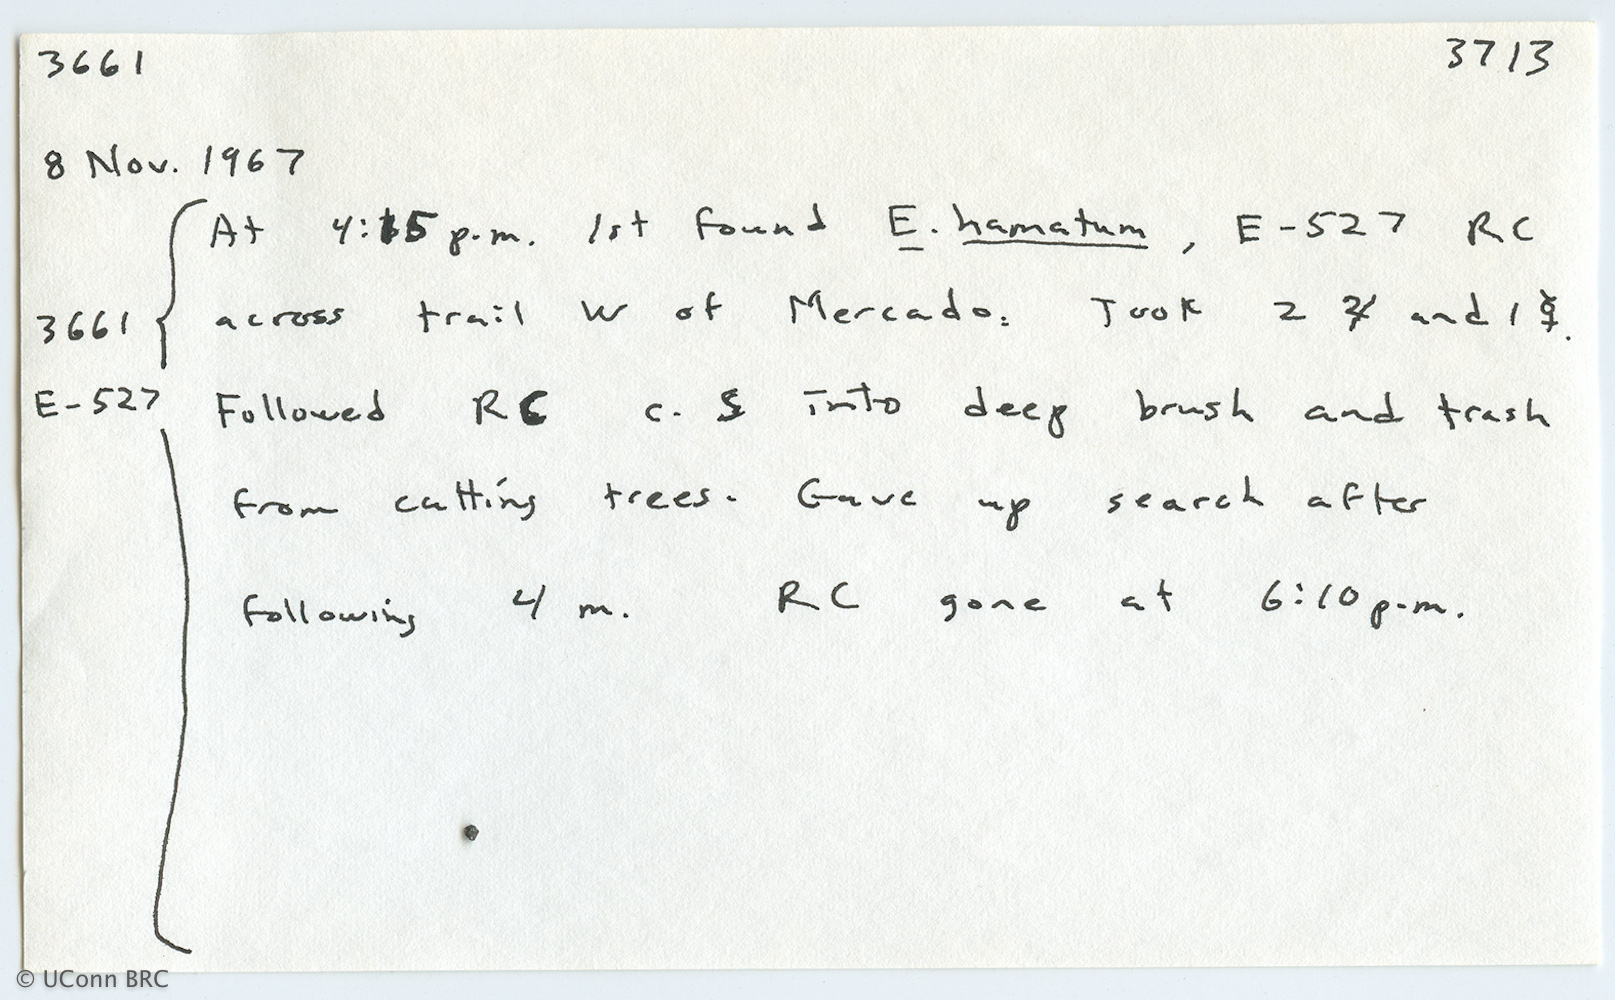 3661 3713
8 Nov. 1967
At 4:15 p.m. 1st found E. hamatum, E-527 RC
3661 across trail W of Mercado. Took 2 ♃ and 1 ☿.
E-527 Followed RC c. S into deep brush and trash
from cutting trees. Gave up search after
following 4 m. RC gone at 6:10 p.m.
© UConn BRC